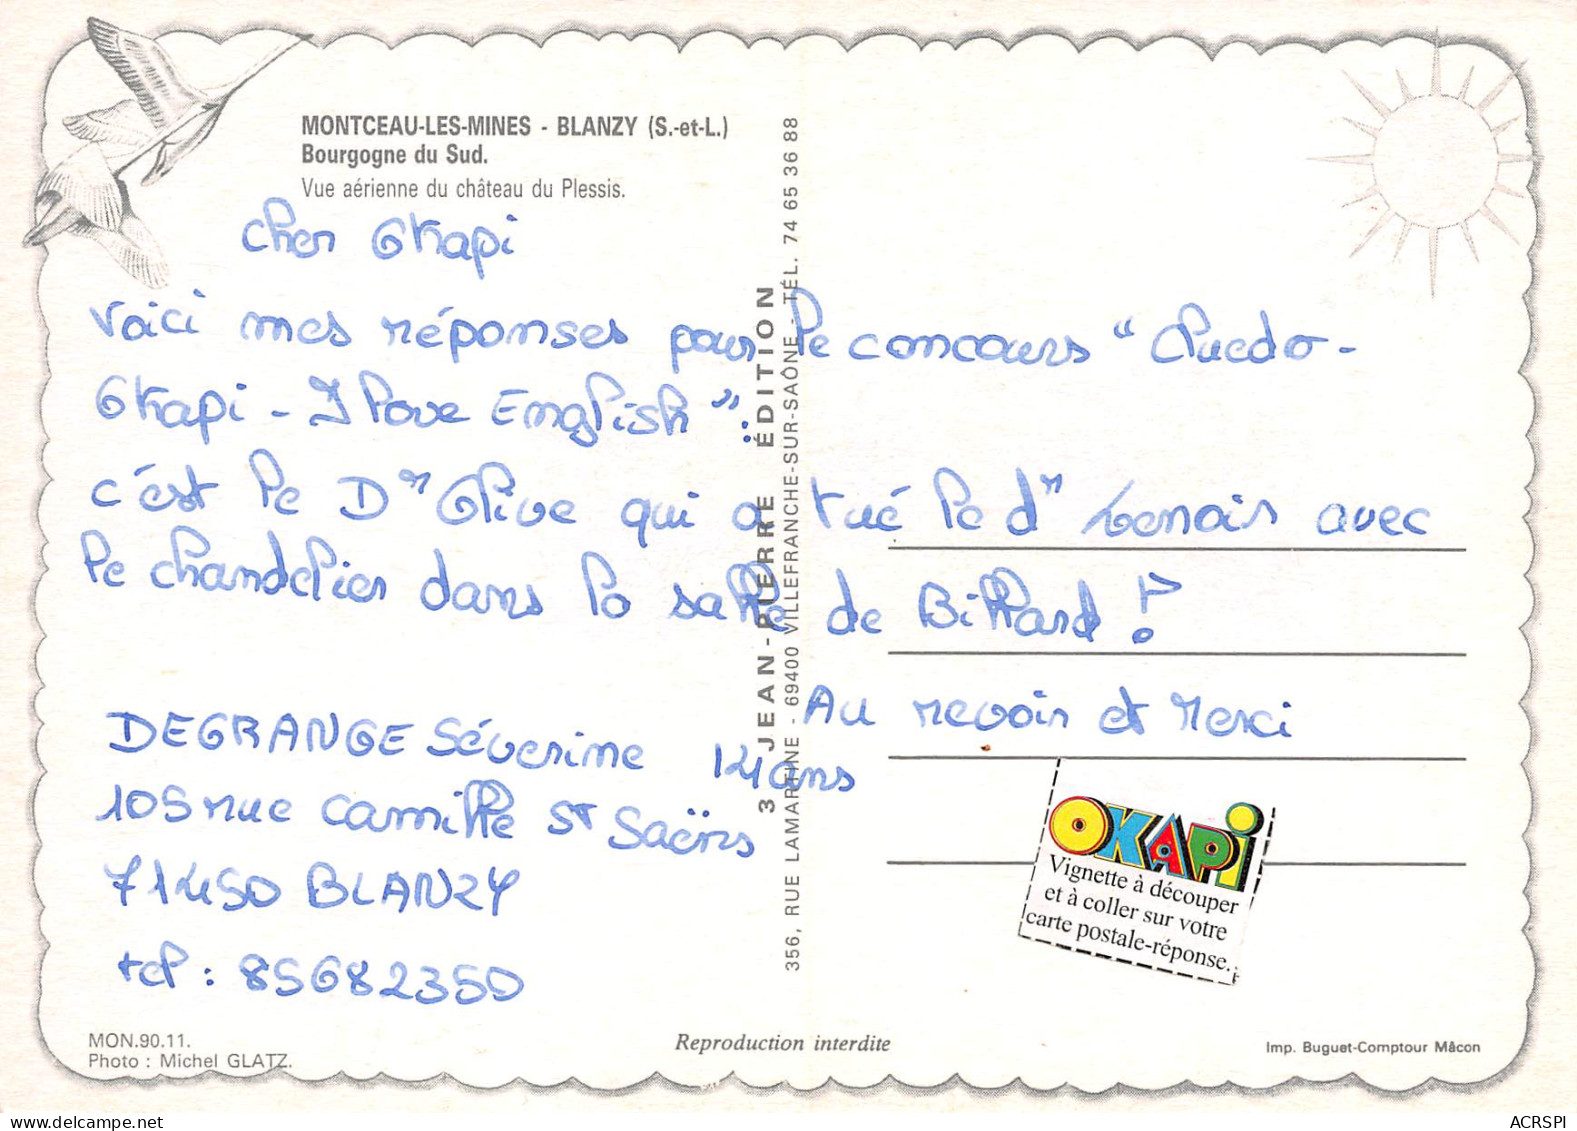 MONTCEAU-LES-MINES - BLANZY (S.-et-L.)
Bourgogne du Sud.
Vue aérienne du château du Plessis.
Cher Okapi
Voici mes réponses pour le concours "Cluedo-
Okapi - I love English":
c'est le Dr Olive qui a tué le dr Lenoir avec
le chandelier dans la salle de Billard !
Au revoir et Merci
DEGRANGE Séverine 14 ans
105 rue Camille St Saëns
71450 BLANZY
tel : 85682350
3 JEAN-PIERRE ÉDITION
356, RUE LAMARTINE - 69400 VILLEFRANCHE-SUR-SAÔNE - TÉL. 74 65 36 88
OKAPi
Vignette à découper
et à coller sur votre
carte postale-réponse.
MON.90.11.
Photo : Michel GLATZ.
Reproduction interdite
Imp. Buguet-Comptour Mâcon
ACRSPI